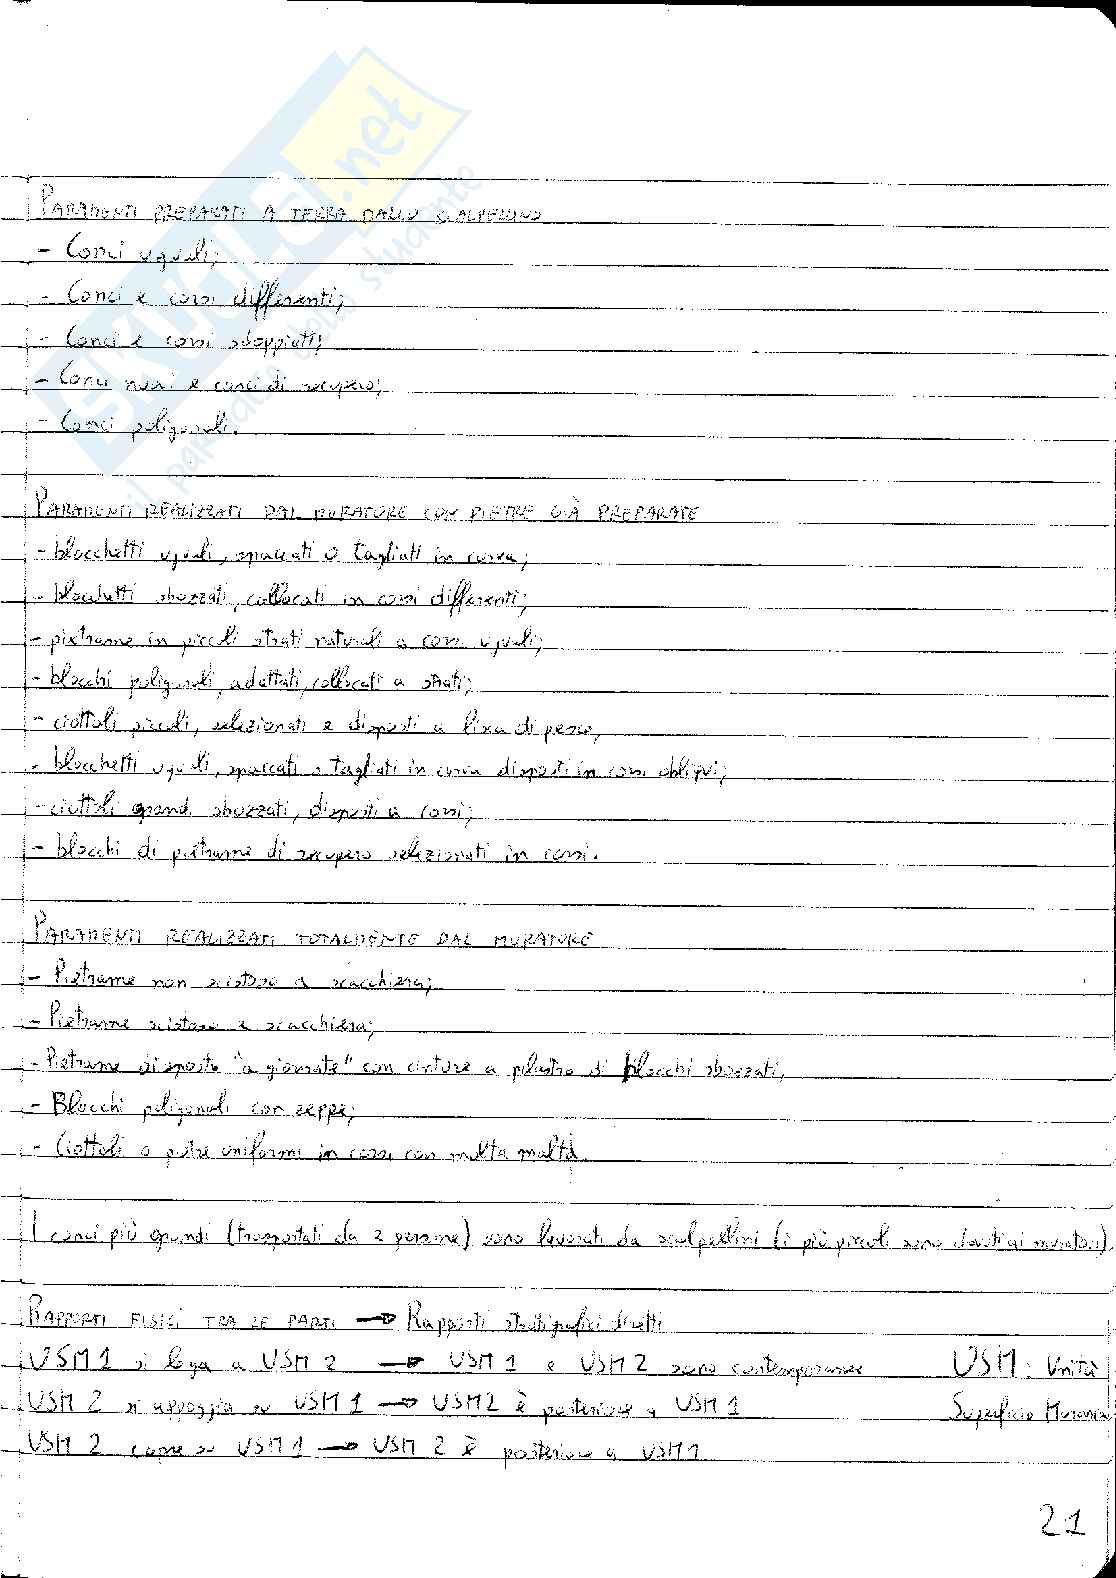 PARAMENTI PREPARATI A TERRA DALLO SCALPELLINO
- Conci uguali;
- Conci e corsi differenti;
- Conci e corsi sdoppiati;
- Conci nuovi e conci di recupero;
- Conci poligonali.
PARAMENTI REALIZZATI DAL MURATORE CON PIETRE GIÀ PREPARATE
- blocchetti uguali, spaccati o tagliati in cava;
- blocchetti sbozzati, collocati in corsi differenti;
- pietrame in piccoli strati naturali a corsi uguali;
- blocchi poligonali, adattati, collocati a strati;
- ciottoli piccoli, selezionati e disposti a lisca di pesce,
- blocchetti uguali, spaccati o tagliati in cava disposti in corsi obliqui;
- ciottoli grandi sbozzati, disposti a corsi;
- blocchi di pietrame di recupero selezionati in corsi.
PARAMENTI REALIZZATI TOTALMENTE DAL MURATORE
- Pietrame non scistoso a scacchiera;
- Pietrame scistoso a scacchiera;
- Pietrame disposto "a giornate" con cinture a pilastro di blocchi sbozzati,
- Blocchi poligonali con zeppe;
- Ciottoli o pietre uniformi in corsi con molta malta.
I conci più grandi (trasportati da 2 persone) sono lavorati da scalpellini (i più piccoli sono dovuti ai muratori).
RAPPORTI FISICI TRA LE PARTI → Rapporti stratigrafici diretti
USM 1 si lega a USM 2 → USM 1 e USM 2 sono contemporanee USM: Unità
USM 2 si appoggia su USM 1 → USM2 è posteriore a USM 1 Superficie Muraria
USM 2 copre su USM 1 → USM 2 è posteriore a USM 1
21
SKUOLA.net
il paradiso dello studente